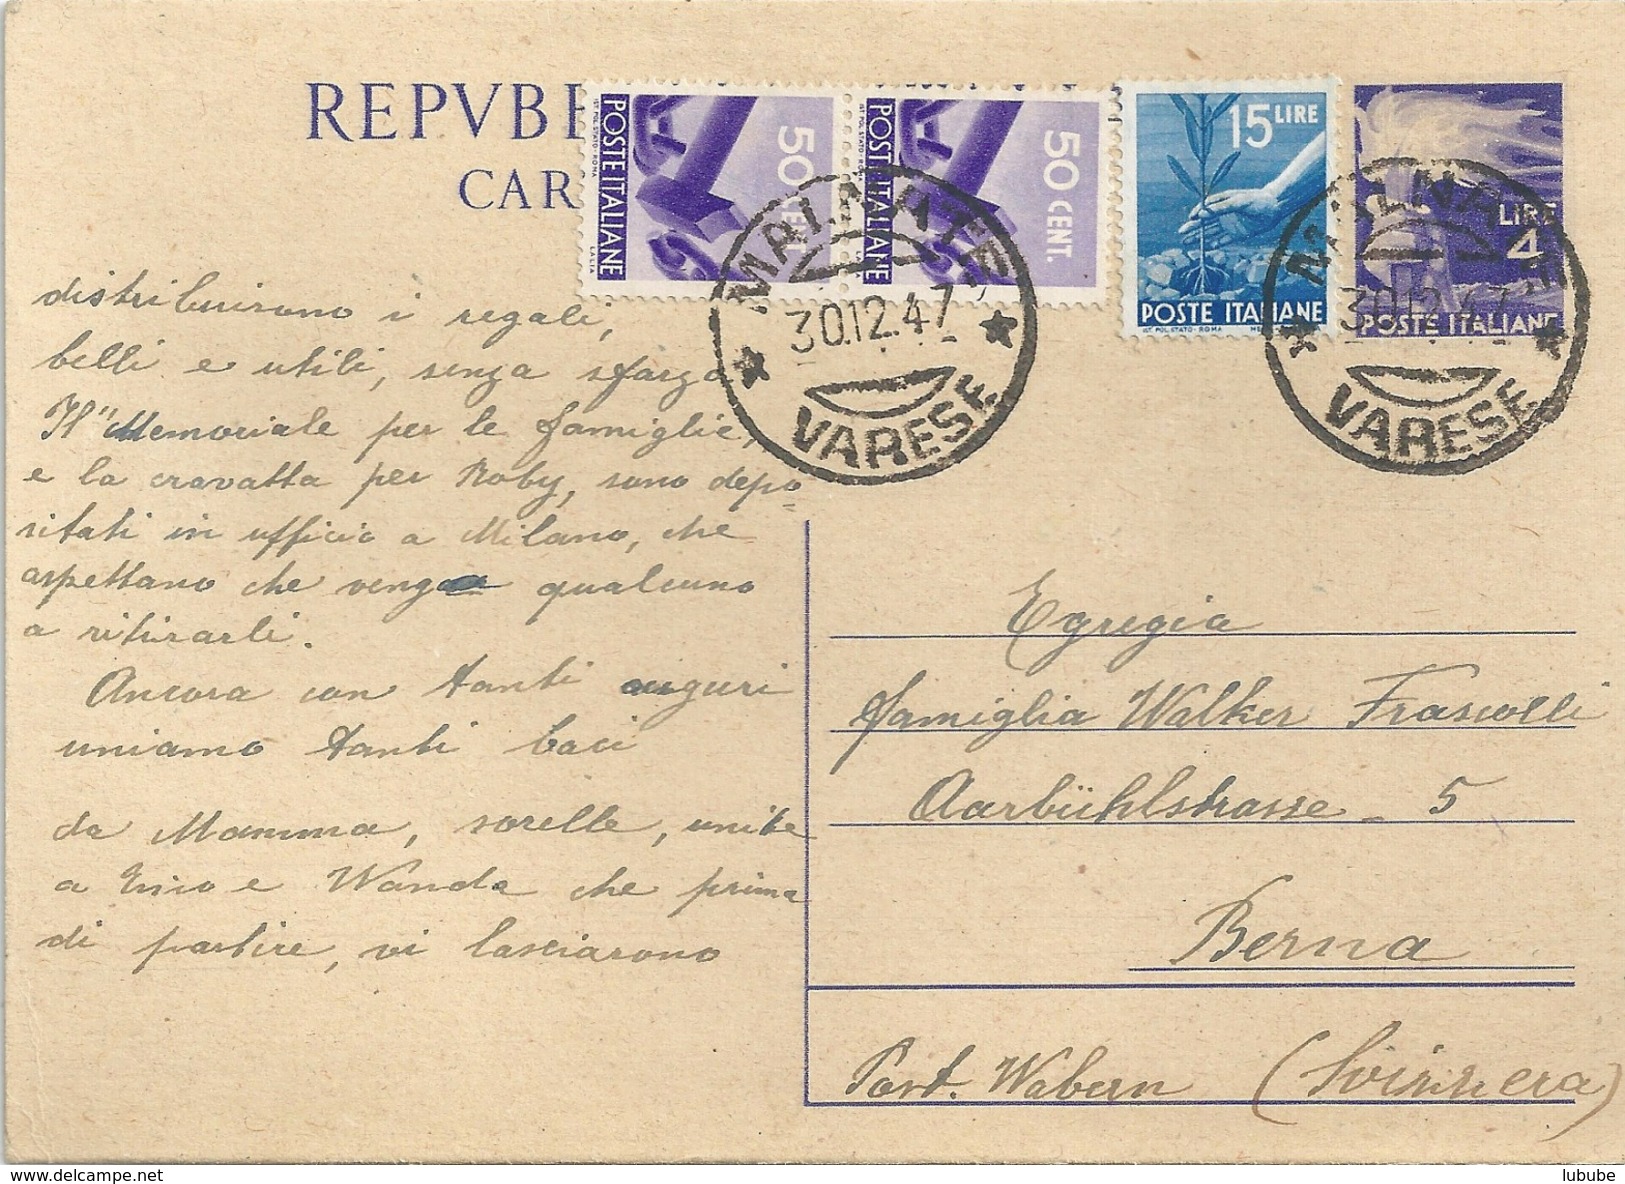 REPVBB
CAR
POSTE ITALIANE
IST. POL. STATO - ROMA
50 CENT.
LALIA
POSTE ITALIANE
IST. POL. STATO - ROMA
50 CENT.
LALIA
15 LIRE
POSTE ITALIANE
IST. POL. STATO - ROMA
LIRE
4
POSTE ITALIANE
MALNATE
30.12.47
VARESE
MALNATE
30.12.47
VARESE
distribuirono i regali,
belli e utili, senza sfarzo
Il "Memoriale per le famiglie,
e la cravatta per Roby, sono depo-
sitati in ufficio a Milano, che
aspettano che venga qualcuno
a ritirarli.
Ancora con tanti auguri
uniamo tanti baci
da Mamma, sorelle, unite
a Enio e Wanda che prima
di partire, vi lasciarono
Egregia
famiglia Walker Frascolli
Aarbühlstrasse - 5
Berna
Post. Wabern (Svizzera)
lubube